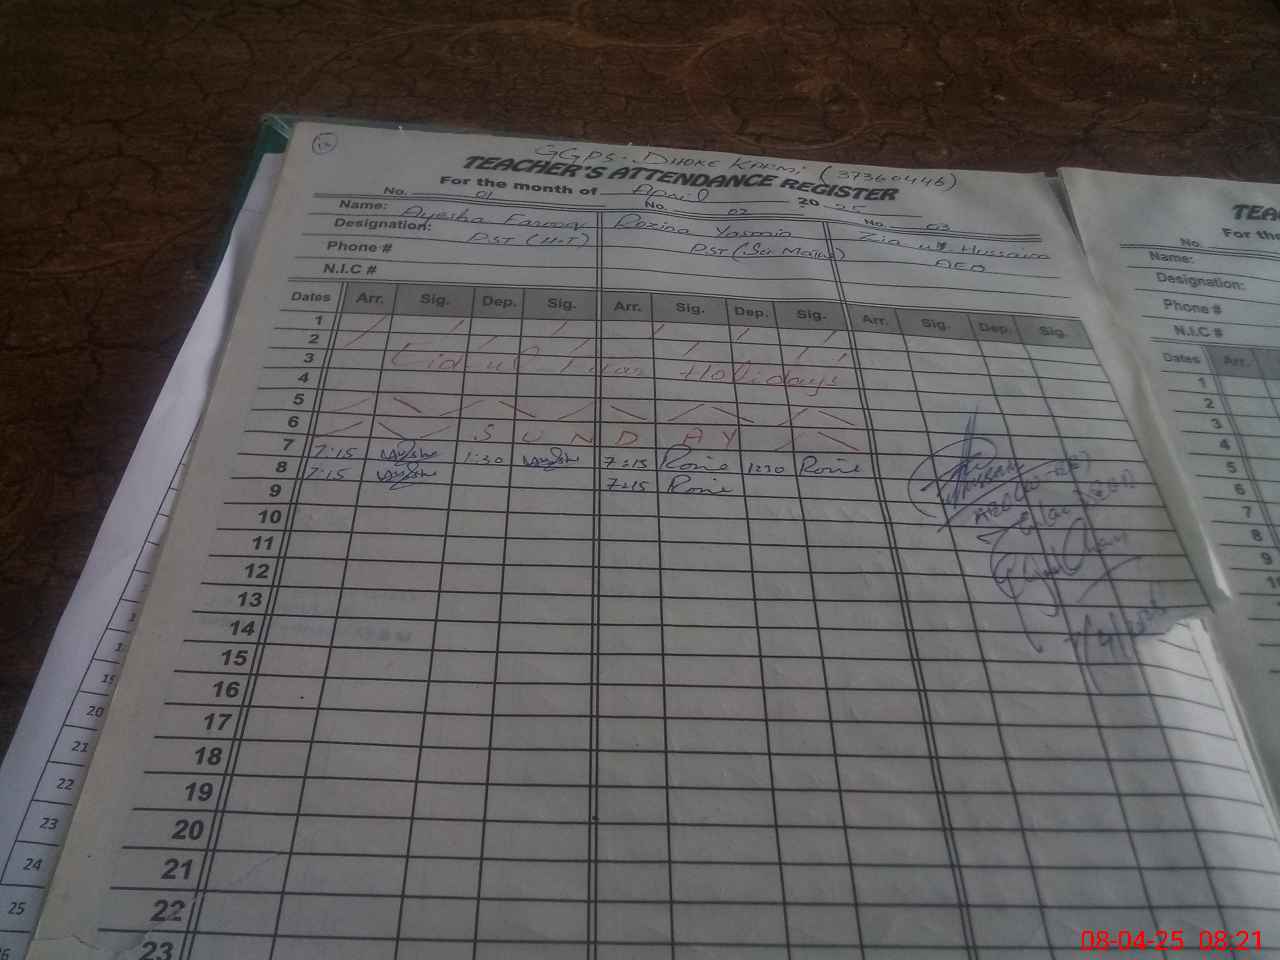 GGPS. DHOKE KARMI (37360446)
TEACHER'S ATTENDANCE REGISTER
For the month of April 2025
No. 01 No. 02 No. 03
Name: Ayesha Farooq Rozina Yasmin Zia ul Hussain
Designation: PST (H.T) PST (Sci Math) AEO
Phone #
N.I.C #
Dates Arr. Sig. Dep. Sig. Arr. Sig. Dep. Sig. Arr. Sig. Dep. Sig.
1
2
3 Eid ul Fitar Hollidays
4
5
6 SUNDAY
7 7:15 1:30 7:15 Rozie 1:30 Rozie
8 7:15 7:15 Rozie
9
10
11
12
13
14
15
16
17
18
19
20
21
22
23
20
21
22
23
24
25
TEA
For the
No.
Name:
Designation:
Phone #
N.I.C #
Dates Arr.
1
2
3
4
5
6
7
8
9
08-04-25 08:21